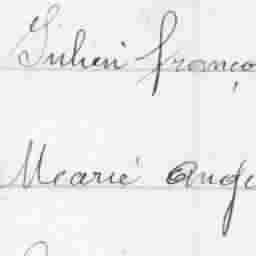 Julien franço
Mearié Ange